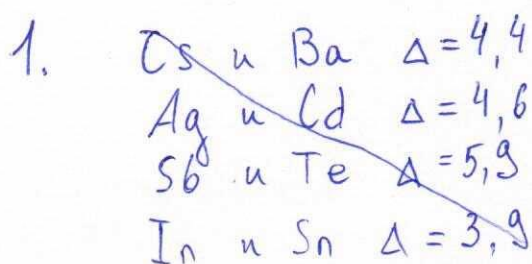 1. Cs и Ba Δ=4,4
Ag и Cd Δ=4,6
Sb и Te Δ=5,9
In и Sn Δ=3,9